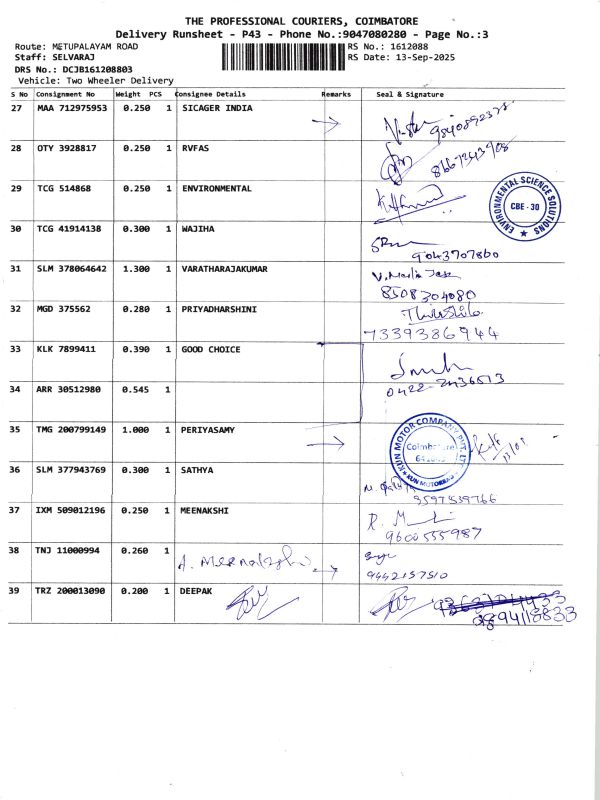 THE PROFESSIONAL COURIERS, COIMBATORE
Delivery Runsheet - P43 - Phone No.:9047080280 - Page No.:3
Route: METUPALAYAM ROAD RS No.: 1612088
Staff: SELVARAJ RS Date: 13-Sep-2025
DRS No.: DCJB161208803
Vehicle: Two Wheeler Delivery
S No Consignment No Weight PCS Consignee Details Remarks Seal & Signature
27 MAA 712975953 0.250 1 SICAGER INDIA
28 OTY 3928817 0.250 1 RVFAS
29 TCG 514868 0.250 1 ENVIRONMENTAL
ENVIRONMENTAL SCIENCE SOLUTIONS
CBE - 30
30 TCG 41914138 0.300 1 WAJIHA
9043707860
31 SLM 378064642 1.300 1 VARATHARAJAKUMAR
8508304080
32 MGD 375562 0.280 1 PRIYADHARSHINI
7339386944
33 KLK 7899411 0.390 1 GOOD CHOICE
0422-2436513
34 ARR 30512980 0.545 1
35 TMG 200799149 1.000 1 PERIYASAMY
KUN MOTOR COMPANY PVT. LTD
Coimbatore
KUN MOTOREN
36 SLM 377943769 0.300 1 SATHYA
9597539766
37 IXM 509012196 0.250 1 MEENAKSHI
9600555987
38 TNJ 11000994 0.260 1
9442157510
39 TRZ 200013090 0.200 1 DEEPAK
9894118833